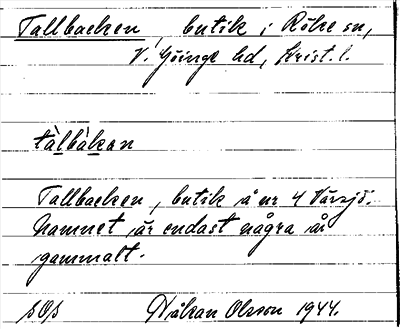 Tallbacken, butik i Röke sn,
V. Göinge hd, Krist. l.
tàlbàkan
Tallbacken, butik å nr 4 Värsjö.
Namnet är endast några år
gammalt.
Håkan Olsson 1944.